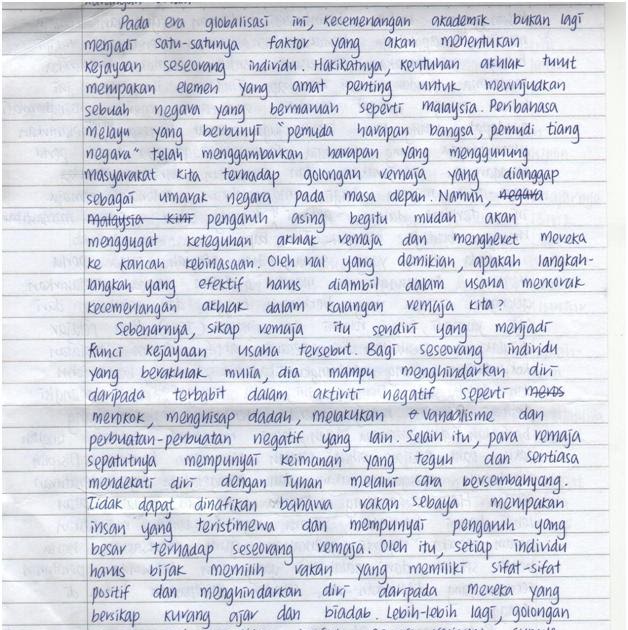 Pada era globalisasi ini, kecemerlangan akademik bukan lagi
menjadi satu-satunya faktor yang akan menentukan
kejayaan seseorang individu. Hakikatnya, keutuhan akhlak turut
merupakan elemen yang amat penting untuk mewujudkan
sebuah negara yang bermaruah seperti malaysia. Peribahasa
melayu yang berbunyi "pemuda harapan bangsa, pemudi tiang
negara" telah menggambarkan harapan yang menggunung
masyarakat kita terhadap golongan remaja yang dianggap
sebagai umarak negara pada masa depan. Namun, negara
malaysia kini pengaruh asing begitu mudah akan
menggugat keteguhan akhlak remaja dan mengheret mereka
ke kancah kebinasaan. Oleh hal yang demikian, apakah langkah-
langkah yang efektif harus diambil dalam usaha mencorak
kecemerlangan akhlak dalam kalangan remaja kita?
Sebenarnya, sikap remaja itu sendiri yang menjadi
kunci kejayaan usaha tersebut. Bagi seseorang individu
yang berakhlak mulia, dia mampu menghindarkan diri
daripada terbabit dalam aktiviti negatif seperti meros
merokok, menghisap dadah, melakukan vandalisme dan
perbuatan-perbuatan negatif yang lain. Selain itu, para remaja
sepatutnya mempunyai keimanan yang teguh dan sentiasa
mendekati diri dengan Tuhan melalui cara bersembahyang.
Tidak dapat dinafikan bahawa rakan sebaya merupakan
insan yang teristimewa dan mempunyai pengaruh yang
besar terhadap seseorang remaja. Oleh itu, setiap individu
harus bijak memilih rakan yang memiliki sifat-sifat
positif dan menghindarkan diri daripada mereka yang
bersikap kurang ajar dan biadab. Lebih-lebih lagi, golongan